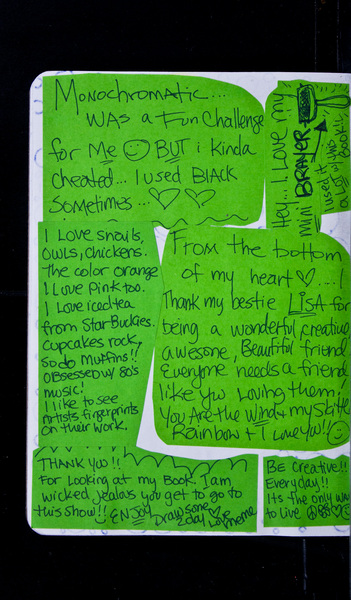 Monochromatic...
WAS a Fun Challenge
for Me BUT i kinda
cheated... I used BlACK
Sometimes...
Hey... I Love my
mini BRAYER
I used it
A lot in this
BOOK!!
I Love snails,
OWLS, chickens.
The color orange
I Love Pink too.
I Love iced tea
from StarBuckies.
cupcakes rock,
so do Muffins!!
OBsessed w/ 80's
music!
I like to see
artists fingerprints
on their work.
From the bottom
of my heart ....!
Thank my bestie LiSA for
being a wonderful, creative,
awesome, Beautiful friend
Everyone needs a friend
like you Loving them!
You Are the Wind + my
Rainbow + I Love you!!
THANK YOU!!
For Looking at my Book. I am
wicked Jealous you get to go to
this show!! ENJOY Draw some
2day Love
BE Creative!!
Everyday!!
It's the only way
to Live